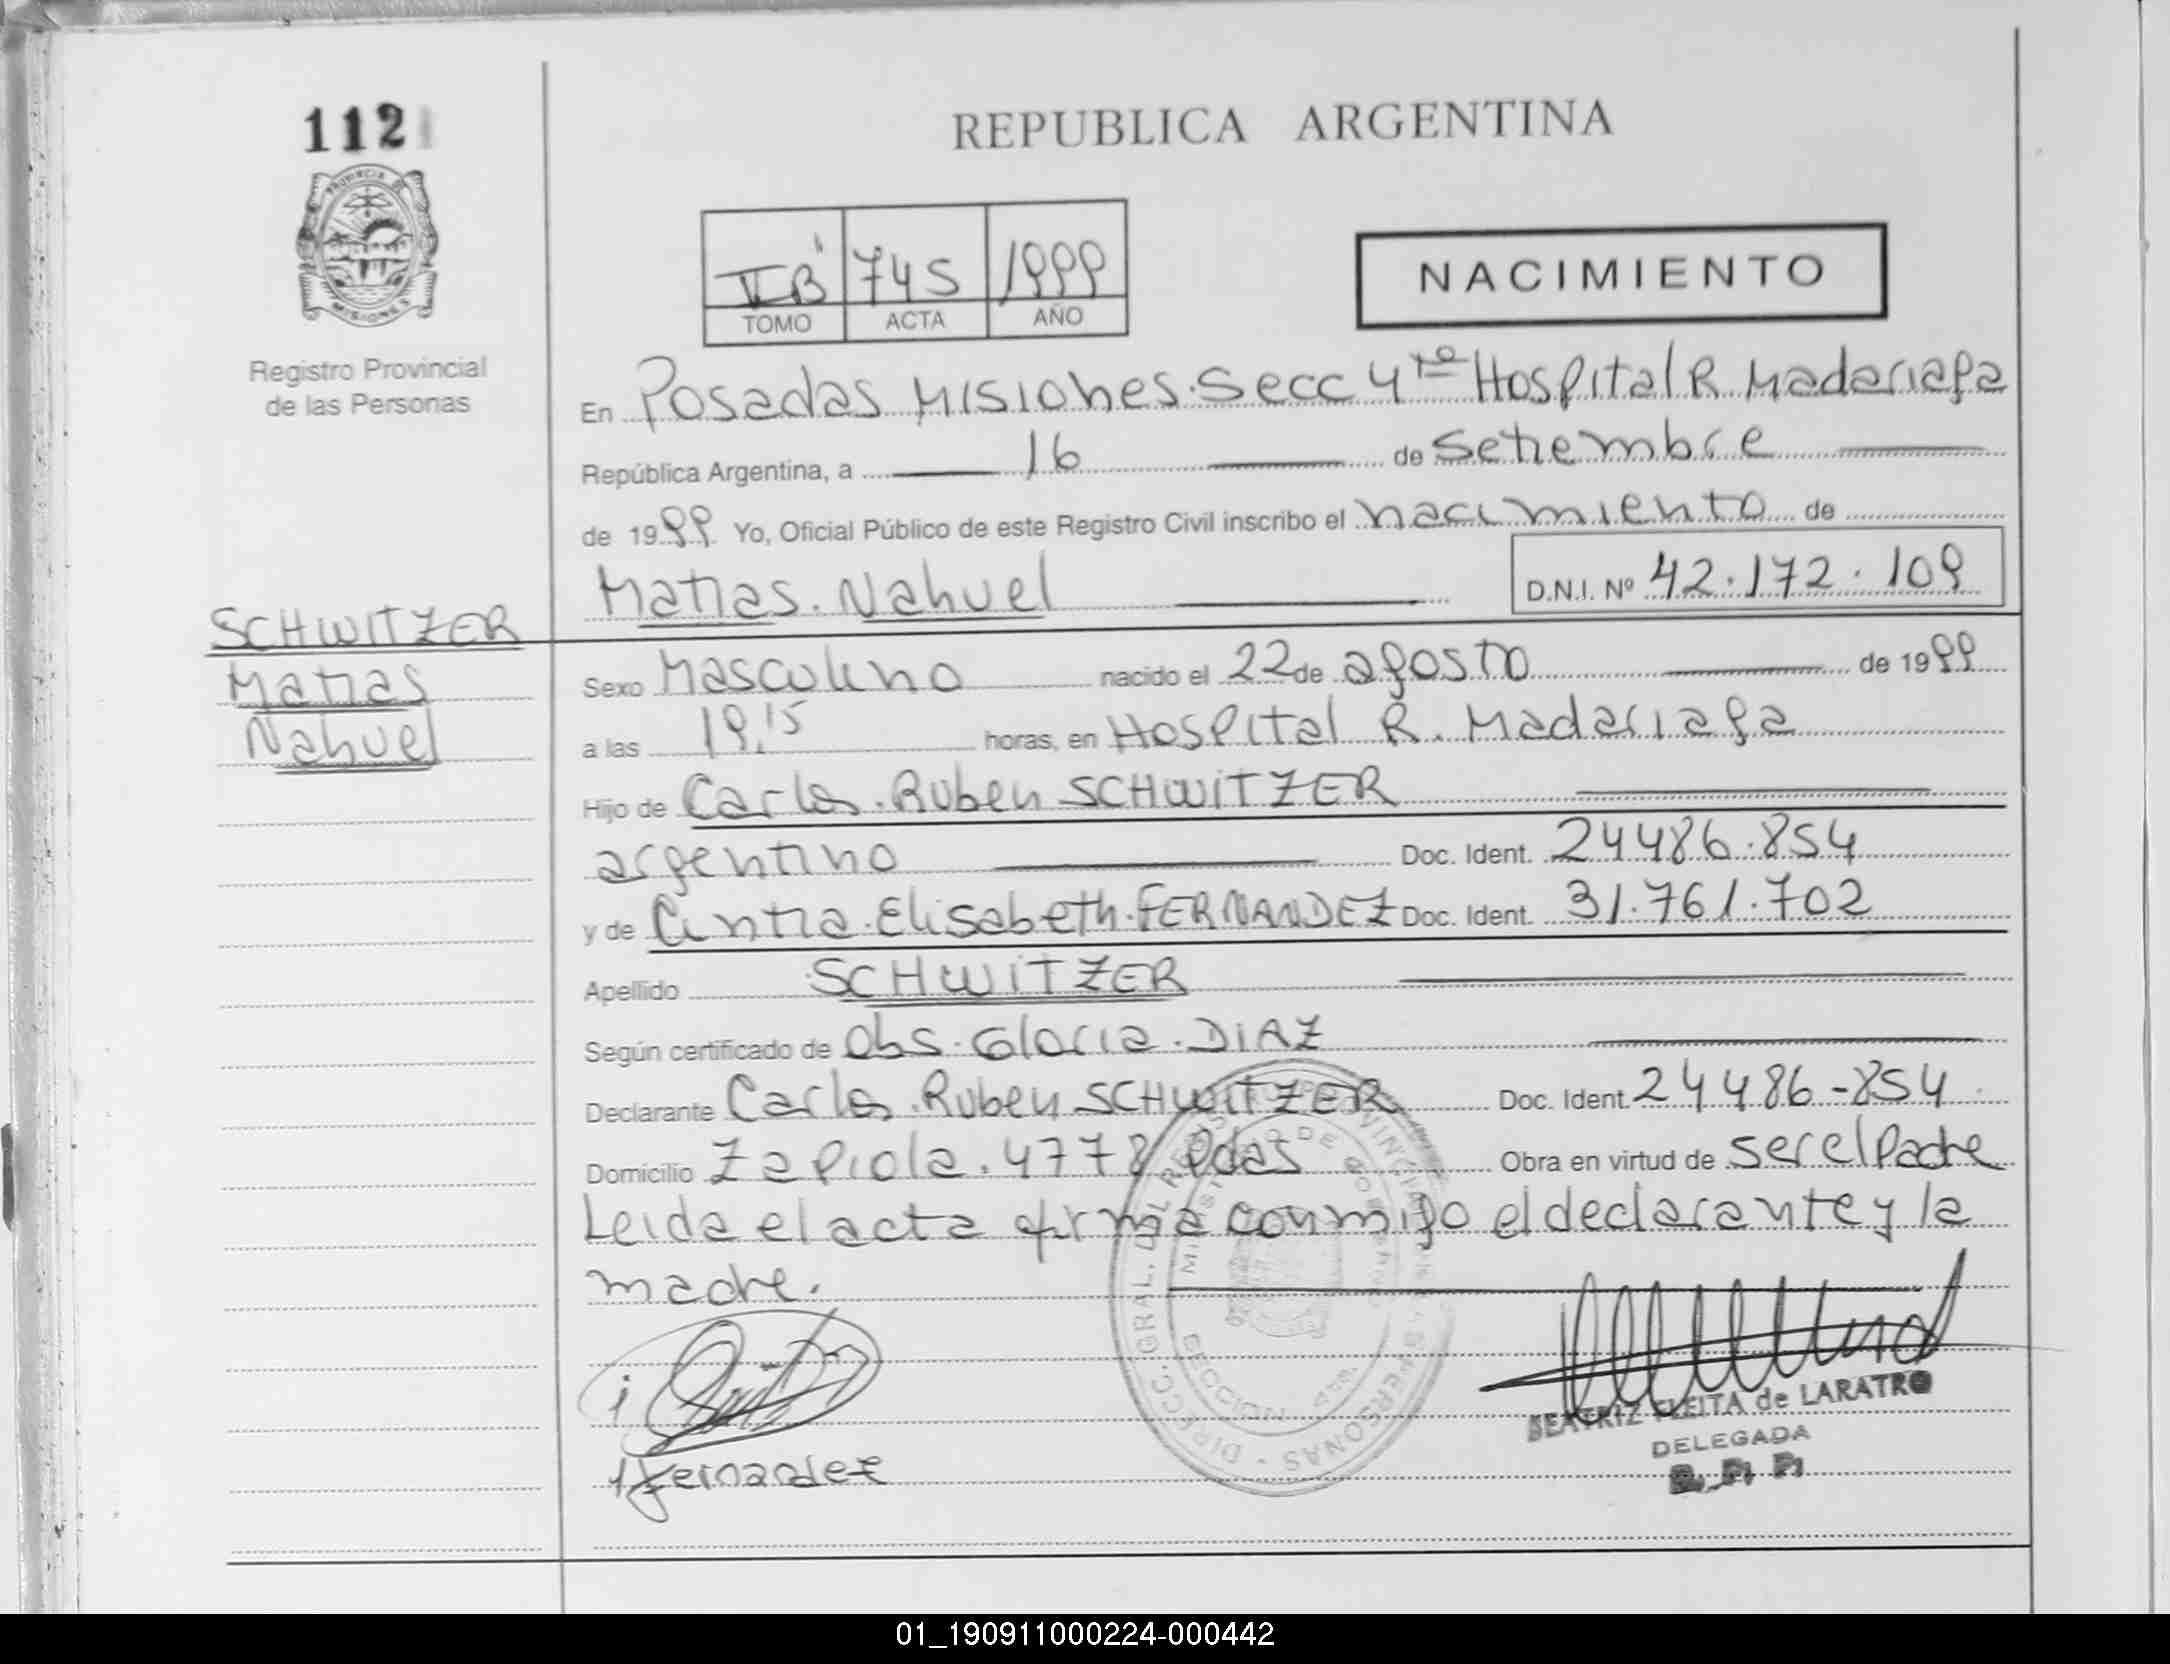 112
REPUBLICA ARGENTINA
PROVINCIA DE
MISIONES
Registro Provincial
de las Personas
745 1999
TOMO ACTA AÑO
NACIMIENTO
En Posadas Misiones. Secc 4ta Hospital R. Madariaga
República Argentina, a 16 de Setiembre
de 1999 Yo, Oficial Público de este Registro Civil inscribo el nacimiento de
Matias. Nahuel D.N.I. Nº 42.172.109
SCHWITZER
Matias
Nahuel
Sexo Masculino nacido el 22 de agosto de 1999
a las 19,15 horas, en Hospital R. Madariaga
Hijo de Carlos. Ruben SCHWITZER
argentino Doc. Ident. 24486.854
y de Cintia. Elisabeth. FERNANDEZ Doc. Ident. 31.761.702
Apellido SCHWITZER
Según certificado de Obs. Gloria. DIAZ
Declarante Carlos. Ruben SCHWITZER Doc. Ident. 24486-854
Domicilio Zapiola. 4778 Pdas Obra en virtud de ser el Padre
Leida el acta firma conmigo el declarante y la
madre.
Fernandez
BEATRIZ FLEITA de LARATRO
DELEGADA
01_190911000224-000442